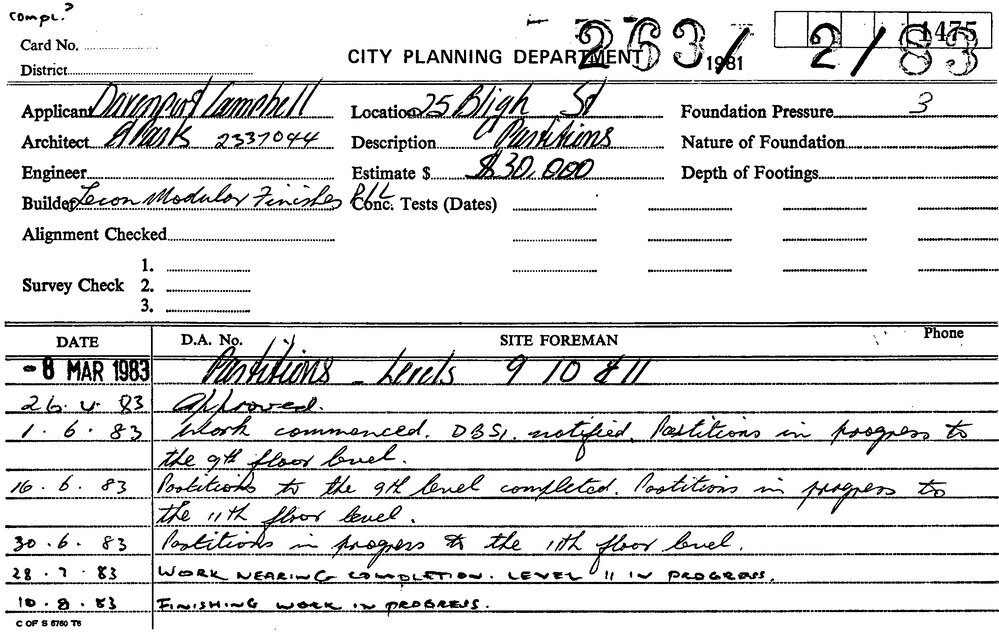 Compl.?
Card No.
District
CITY PLANNING DEPARTMENT
263/
1981
2/83
1475
Applicant Davenport Campbell
Location 25 Bligh St
Foundation Pressure 3
Architect 2337044
Description Partitions
Nature of Foundation
Engineer
Estimate $ $30,000
Depth of Footings
Builder Modular Finishes P/L
Conc. Tests (Dates)
Alignment Checked
Survey Check
1.
2.
3.
DATE D.A. No. SITE FOREMAN Phone
-8 MAR 1983 Partitions - Levels 9 10 & 11
26.4.83 Approved.
1.6.83 Work commenced. DBSI. notified. Partitions in progress to
the 9th floor level.
16.6.83 Partitions to the 9th level completed. Partitions in progress to
the 11th floor level.
30.6.83 Partitions in progress to the 11th floor level.
28.7.83 WORK NEARING COMPLETION. LEVEL 11 IN PROGRESS.
10.8.83 FINISHING WORK IN PROGRESS.
C OF S 6760 T6